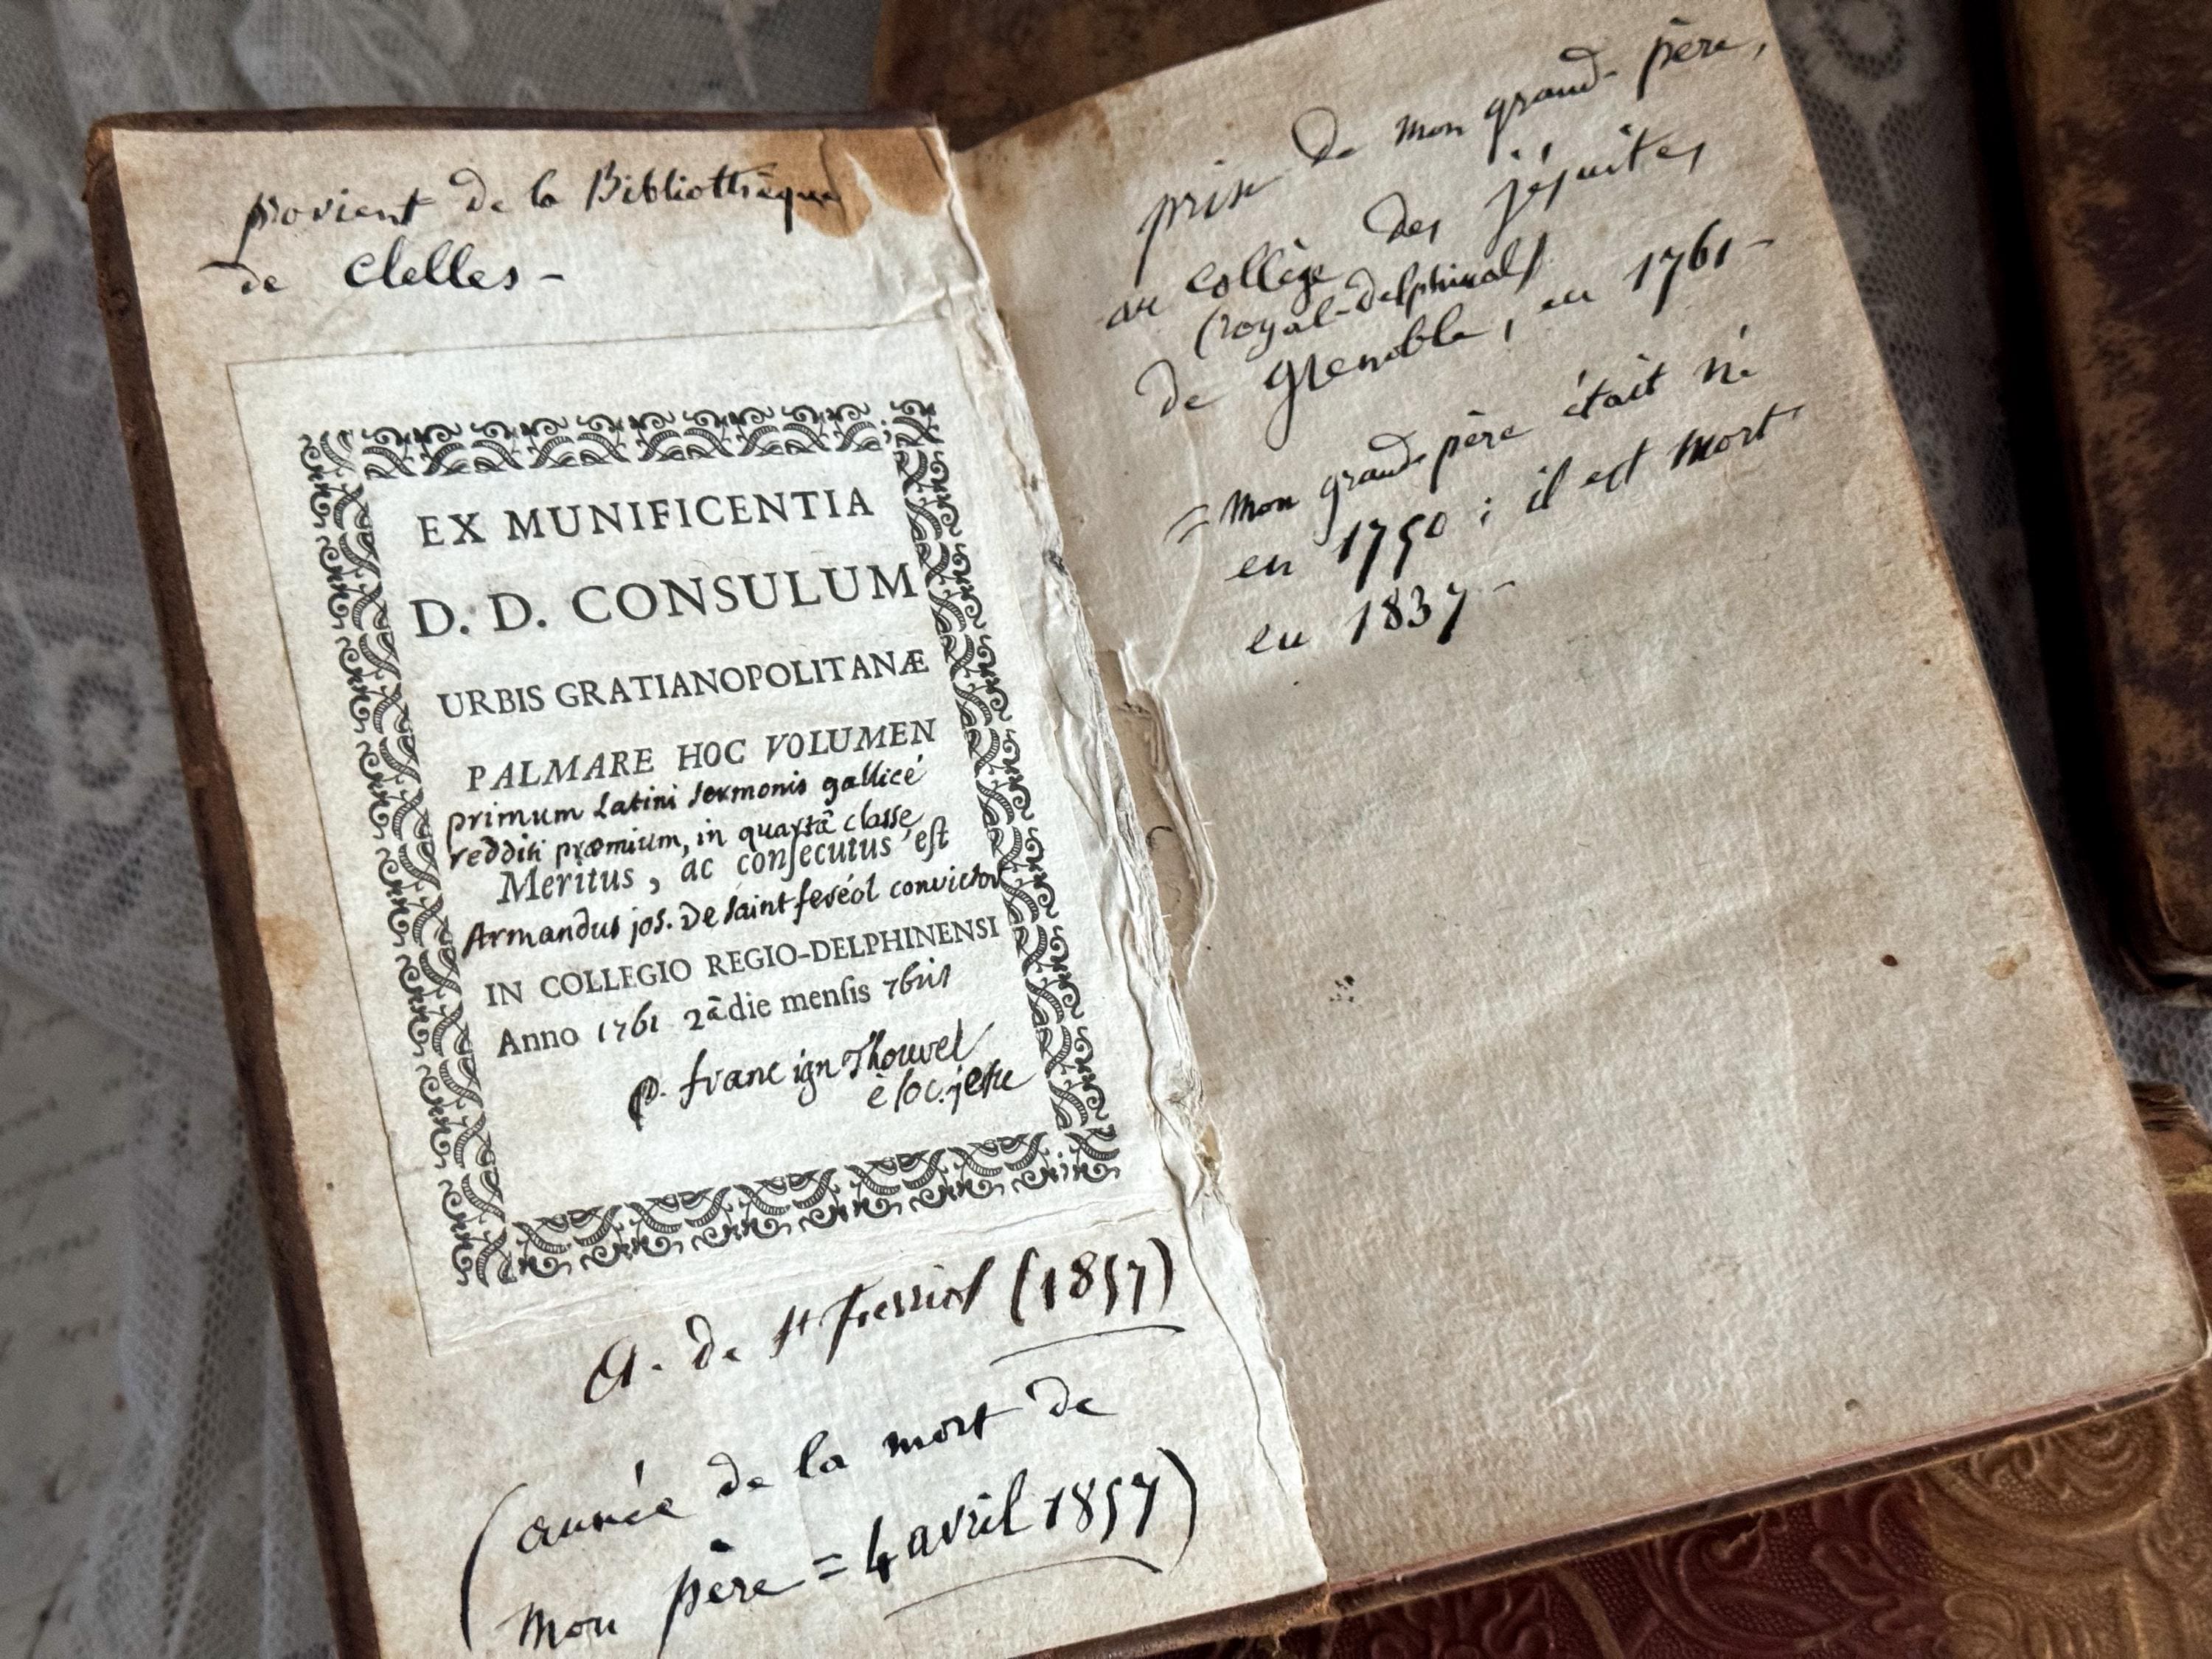 provient de la Bibliothèque
de Clelles -
EX MUNIFICENTIA
D. D. CONSULUM
URBIS GRATIANOPOLITANÆ
PALMARE HOC VOLUMEN
primum Latini sermonis gallicé
redditi præmium, in quartâ classe
Meritus, ac conſecutus eſt
Armandus jos. De Saint feréol convictor
IN COLLEGIO REGIO-DELPHINENSI
Anno 1761 2ā die menſis 7bris
p. franc ign Thouvel
è soc. jesu
A. de St Ferriol (1857)
(année de la mort de
mon père = 4 avril 1857)
prix de mon grand-père,
au collège des jésuites
(royal-delphinal)
de Grenoble, en 1761 -
= Mon grand-père était né
en 1750 ; il est mort
en 1837 -